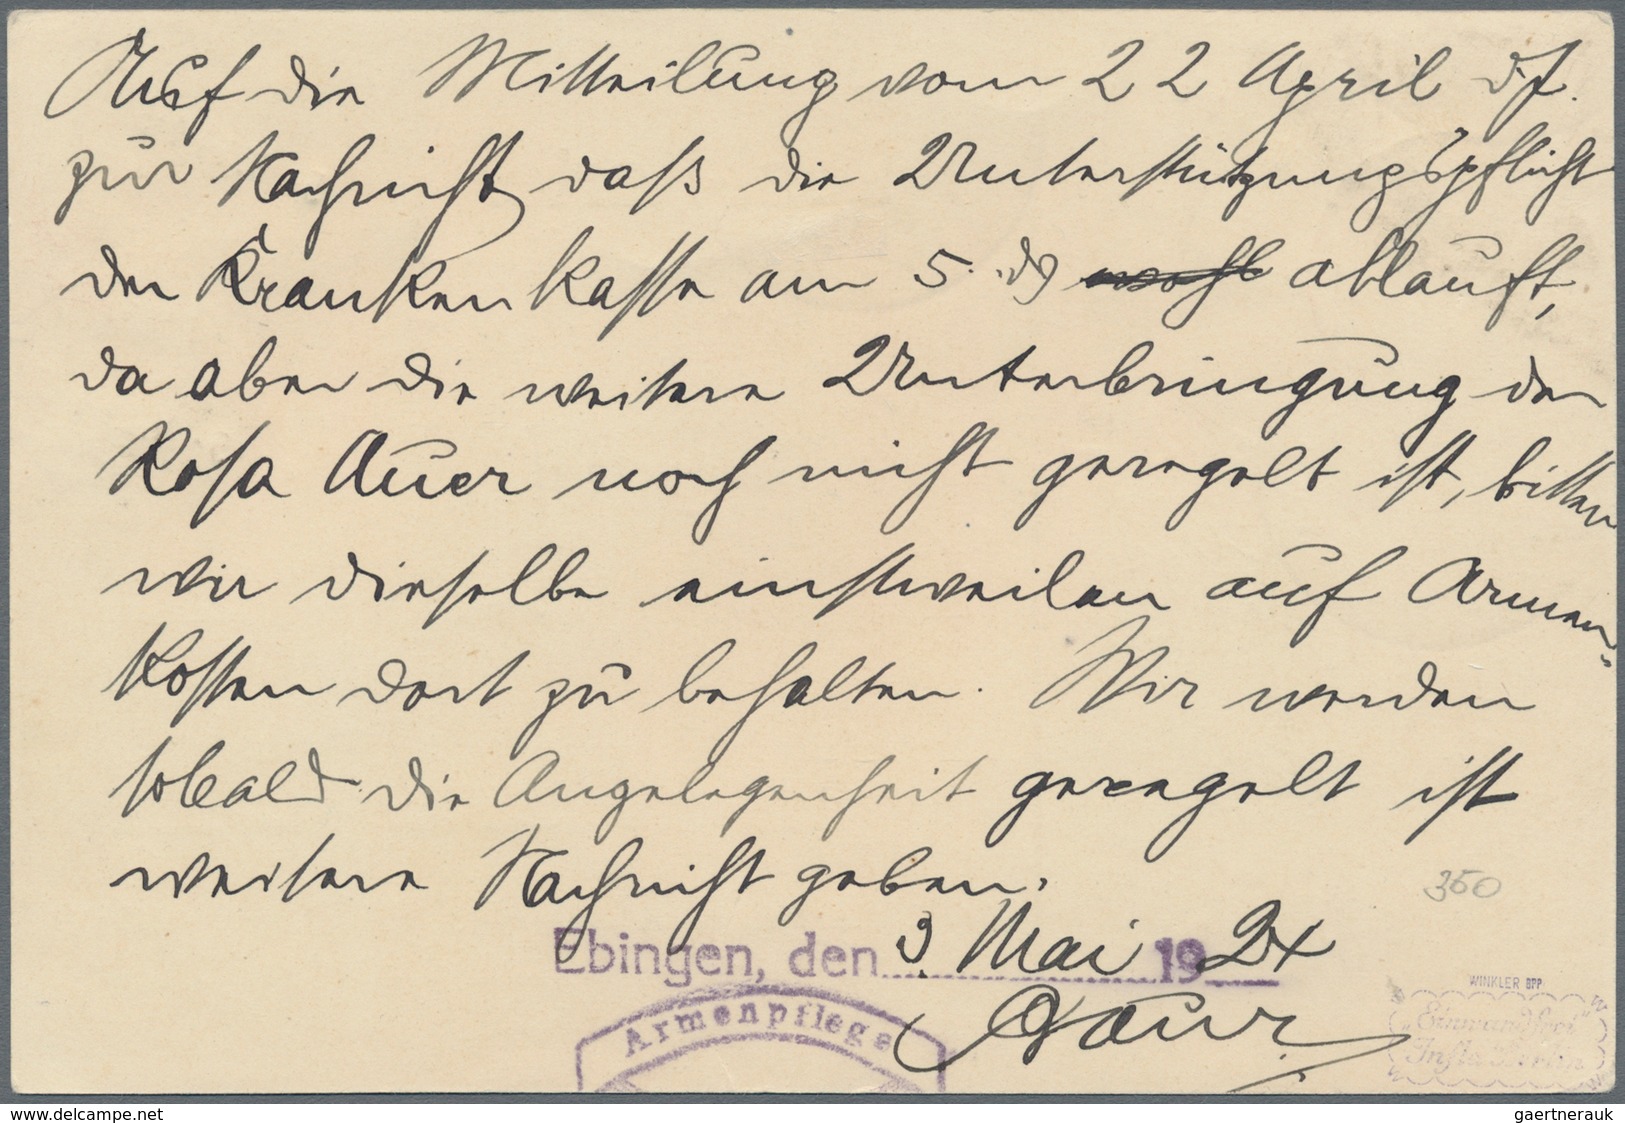 Auf die Mitteilung vom 22 April ds.
zur Nachricht, daß die Unterstützungspflicht
der Krankenkasse am 5. ds wohl abläuft,
da aber die weitere Unterbringung der
Rosa Auer noch nicht geregelt ist, bitten
wir dieselbe einstweilen auf Armen-
kosten dort zu behalten. Wir werden
sobald die Angelegenheit geregelt ist
weitere Nachricht geben.
350
Ebingen, den 3 Mai 1924
Armenpflege
WINKLER BPP
"Einwandfrei"
Infla Berlin
www.delcampe.net
gaertnerauk